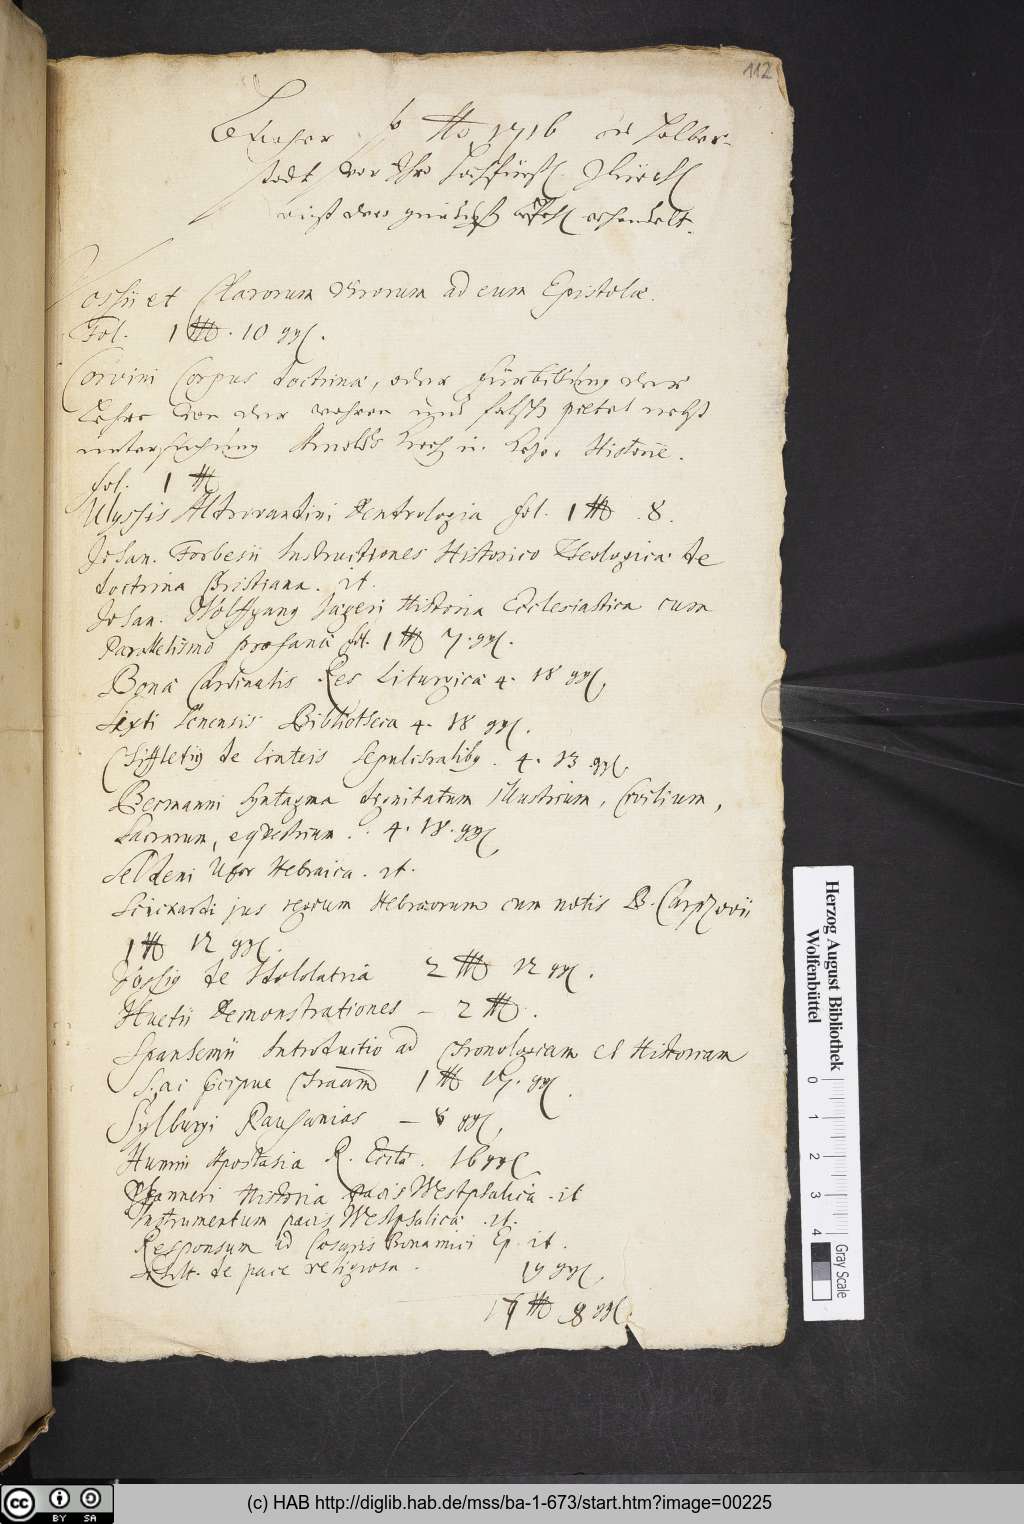 112
Bücher so Ao 1716 in Halber-
stadt vor Ihro Hochfürstl. Durchl
erhandelt.
Vossii et Clarorum Virorum ad eum Epistolae.
Fol. 1 Thl. 10 ggl.
Corvini Corpus doctrinae, oder der
Lehre von der wahren und falsch pietet nebst
untersuchung Arnolds Kirch u. Kezer Historie.
fol. 1 Thl
Ulyssis Aldrovandini Dendrologia fol. 1 Thl. 8.
Johan. Forbesii Instructiones Historico Theologicae de
doctrina Christiana. it.
Johan. Wolffgang Jageri Historia Ecclesiastica cum
Parallelismo profanae fol. 1 Thl 7. ggl.
Bonae Cardinalis Res Liturgicae 4. 18 ggl,
Sixti Senensis Bibliotheca 4. 18 ggl.
Chiffletig de linteis sepulchralibg. 4. 13 ggl.
Bermanni Syntagma dignitatum illustrium, Civilium,
Sacrarum, eqvestrium. 4. 18. ggl
Seldeni Uxor Hebraica. it.
Scickardi jus regium Hebraeorum cum notis B. Carpzovii
1 Thl 12 ggl.
Vossig de Idololatria 2 Thl 12 ggl.
Huetii Demonstrationes – 2 Thl.
Spanhemii Introductio ad Chronologiam et Historiam
Sac 1 Thl 17. ggl.
Sylburgi Pausanias – 8 ggl,
Hunnii Apostasia R. Eccla. 16 ggl
Pfanneri Historia pacis Westphalica. it
Instrumentum pacis Westphalicae. it.
Responsum ad Casaris Bonamici Ep. it.
de pace religiosa. 19 ggl,
17 Thl 8 ggl.
Herzog August Bibliothek
Wolfenbüttel
0 1 2 3 4
Gray Scale
cc BY SA
(c) HAB http://diglib.hab.de/mss/ba-1-673/start.htm?image=00225